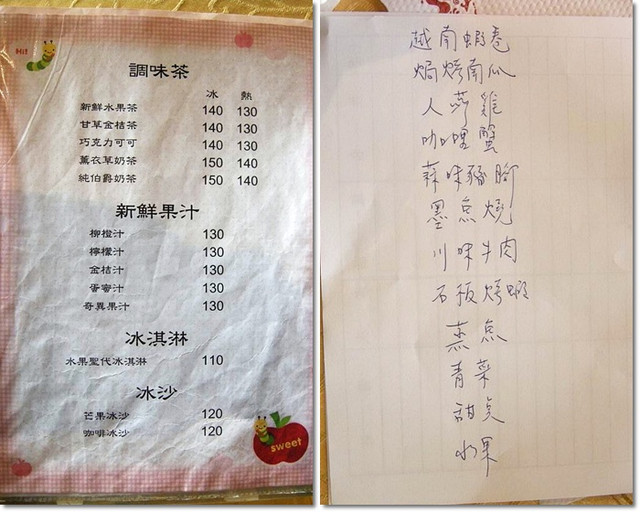 Hi!
調味茶
冰 熱
新鮮水果茶 140 130
甘草金桔茶 140 130
巧克力可可 140 130
薰衣草奶茶 150 140
純伯爵奶茶 150 140
新鮮果汁
柳橙汁 130
檸檬汁 130
金桔汁 130
蛋蜜汁 130
奇異果汁 130
冰淇淋
水果聖代冰淇淋 110
冰沙
芒果冰沙 120
咖啡冰沙 120
sweet
越南蝦卷
焗烤南瓜
人蔘雞
咖哩蟹
蒜味豬腳
墨魚燒
川味牛肉
石板烤蝦
蒸魚
青菜
甜點
水果